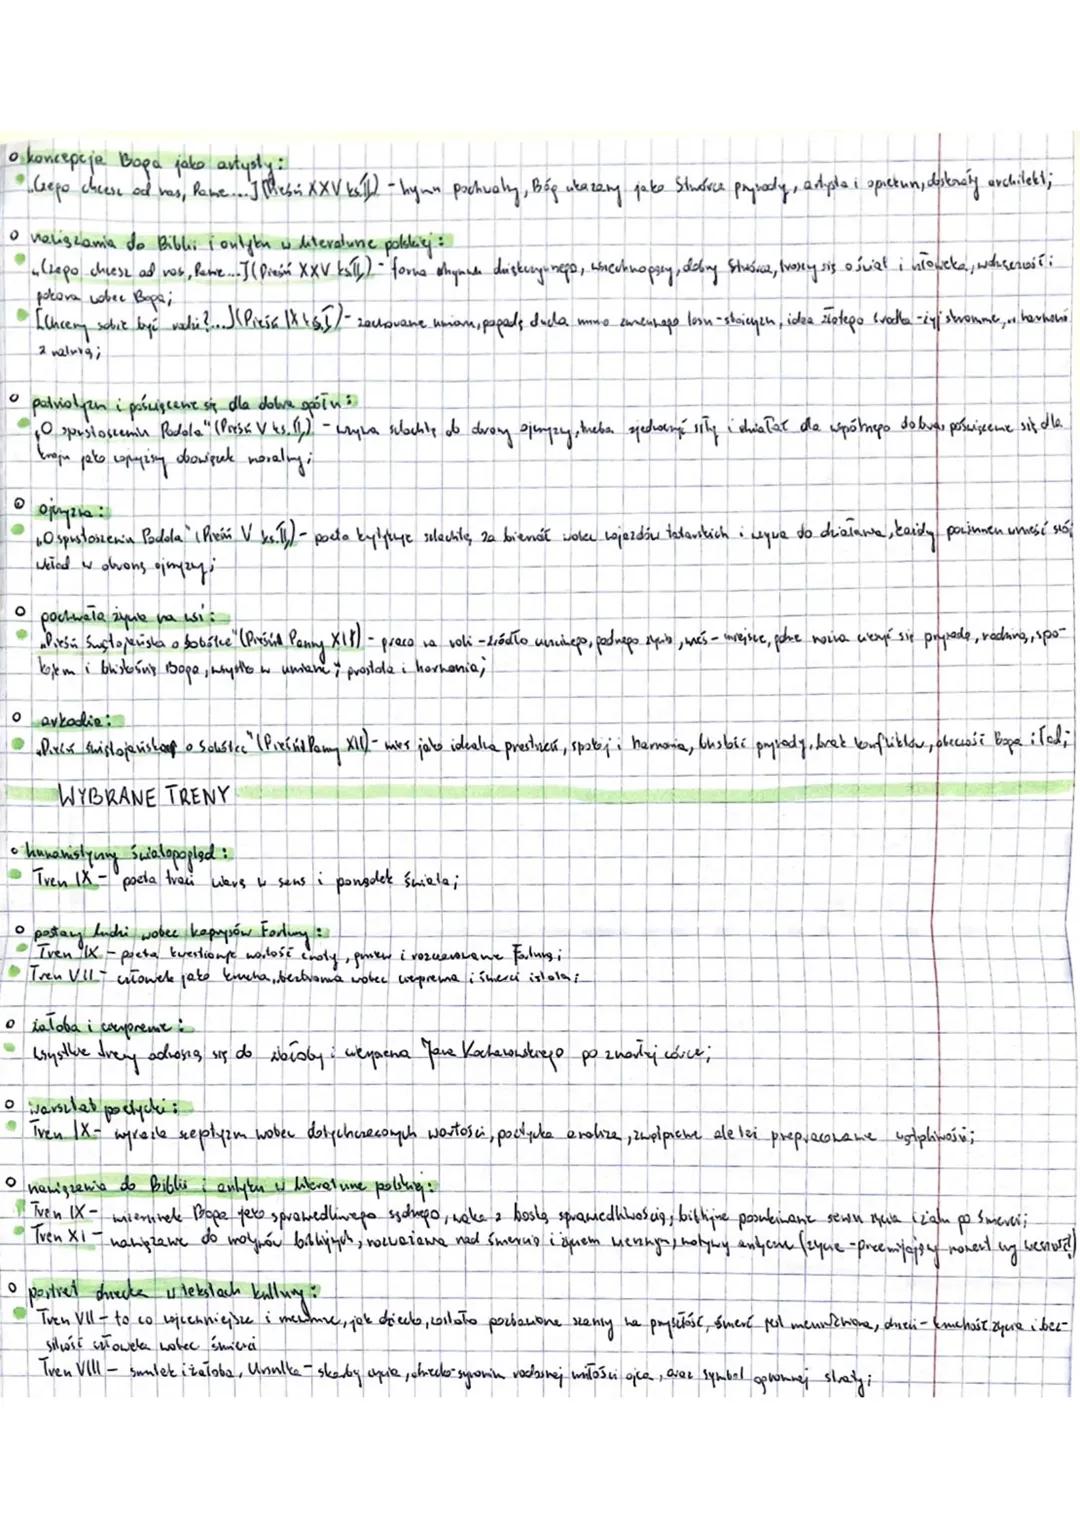 koncepcja Boga jako artysty:
„Czego chcesz od nas, Panie...] (Pieśń XXV ks.II) - hymn pochwalny, Bóg ukazany jako Stwórca przyrody, artysta i opiekun, doskonały architekt;
nawiązania do Biblii i antyku w literaturze polskiej:
„Czego chcesz od nas, Panie...] (Pieśń XXV ks.II) - forma hymnu dziękczynnego, wszechmogący, dobry Stwórca, troszczy się o świat i człowieka, wdzięczność i
pokora wobec Boga;
[Chcemy sobie być radzi?...] (Pieśń IX ks.I) - zachowanie umiaru, pogody ducha mimo zmiennego losu - stoicyzm, idea złotego środka - żyj skromnie, harmonii
z naturą;
patriotyzm i poświęcenie się dla dobra ogółu:
„O spustoszeniu Podola" (Pieśń V ks.II) - wzywa szlachtę do obrony ojczyzny, trzeba zjednoczyć siły i działać dla wspólnego dobra, poświęcenie się dla
kraju jako najwyższy obowiązek moralny;
ojczyzna:
„O spustoszeniu Podola" (Pieśń V ks.II) - poeta krytykuje szlachtę za bierność wobec najazdów tatarskich i wzywa do działania, każdy powinien wnieść swój
wkład w obronę ojczyzny;
pochwała życia na wsi:
„Pieśń świętojańska o Sobótce" (Pieśń Panny XII) - praca na roli - źródło uczciwego, godnego życia, wieś - miejsce, gdzie można cieszyć się przyrodą, rodziną, spo-
kojem i bliskością Boga, wszystko w umiarze, prostota i harmonia;
arkadia:
„Pieśń świętojańska o Sobótce" (Pieśń Panny XII) - wieś jako idealna przestrzeń, spokój i harmonia, bliskość przyrody, brak konfliktów, obecność Boga i ład;
WYBRANE TRENY
humanistyczny światopogląd:
Tren IX - poeta traci wiarę w sens i porządek świata;
postawy ludzi wobec kaprysów Fortuny:
Tren IX - poeta kwestionuje wartość cnoty, gniew i rozczarowanie Fortuną;
Tren VII - człowiek jako krucha, bezbronna wobec cierpienia i śmierci istota;
żałoba i cierpienie:
wszystkie treny odnoszą się do żałoby i cierpienia Jana Kochanowskiego po zmarłej córce;
warsztat poetycki:
Tren IX - wyraża sceptyzm wobec dotychczasowych wartości, poetycka analiza, zwątpienie ale też przepracowanie wątpliwości;
nawiązania do Biblii i antyku w literaturze polskiej:
Tren IX - wizerunek Boga jako sprawiedliwego sędziego, walka z boską sprawiedliwością, biblijne poszukiwanie sensu życia i żalu po śmierci;
Tren XI - nawiązanie do motywów biblijnych, rozważania nad śmiercią i życiem wiecznym, motywy antyczne (życie - przemijający moment czy wieczność?)
portret dziecka w tekstach kultury:
Tren VII - to co najcenniejsze i niewinne, jak dziecko, zostało pozbawione szansy na przyszłość, śmierć jest nieunikniona, dzieci - kruchość życia i bez-
silność człowieka wobec śmierci
Tren VIII - smutek i żałoba, Urszulka - skarb ojca, dziecko - synonim rodzinnej miłości ojca, oraz symbol ogromnej straty;